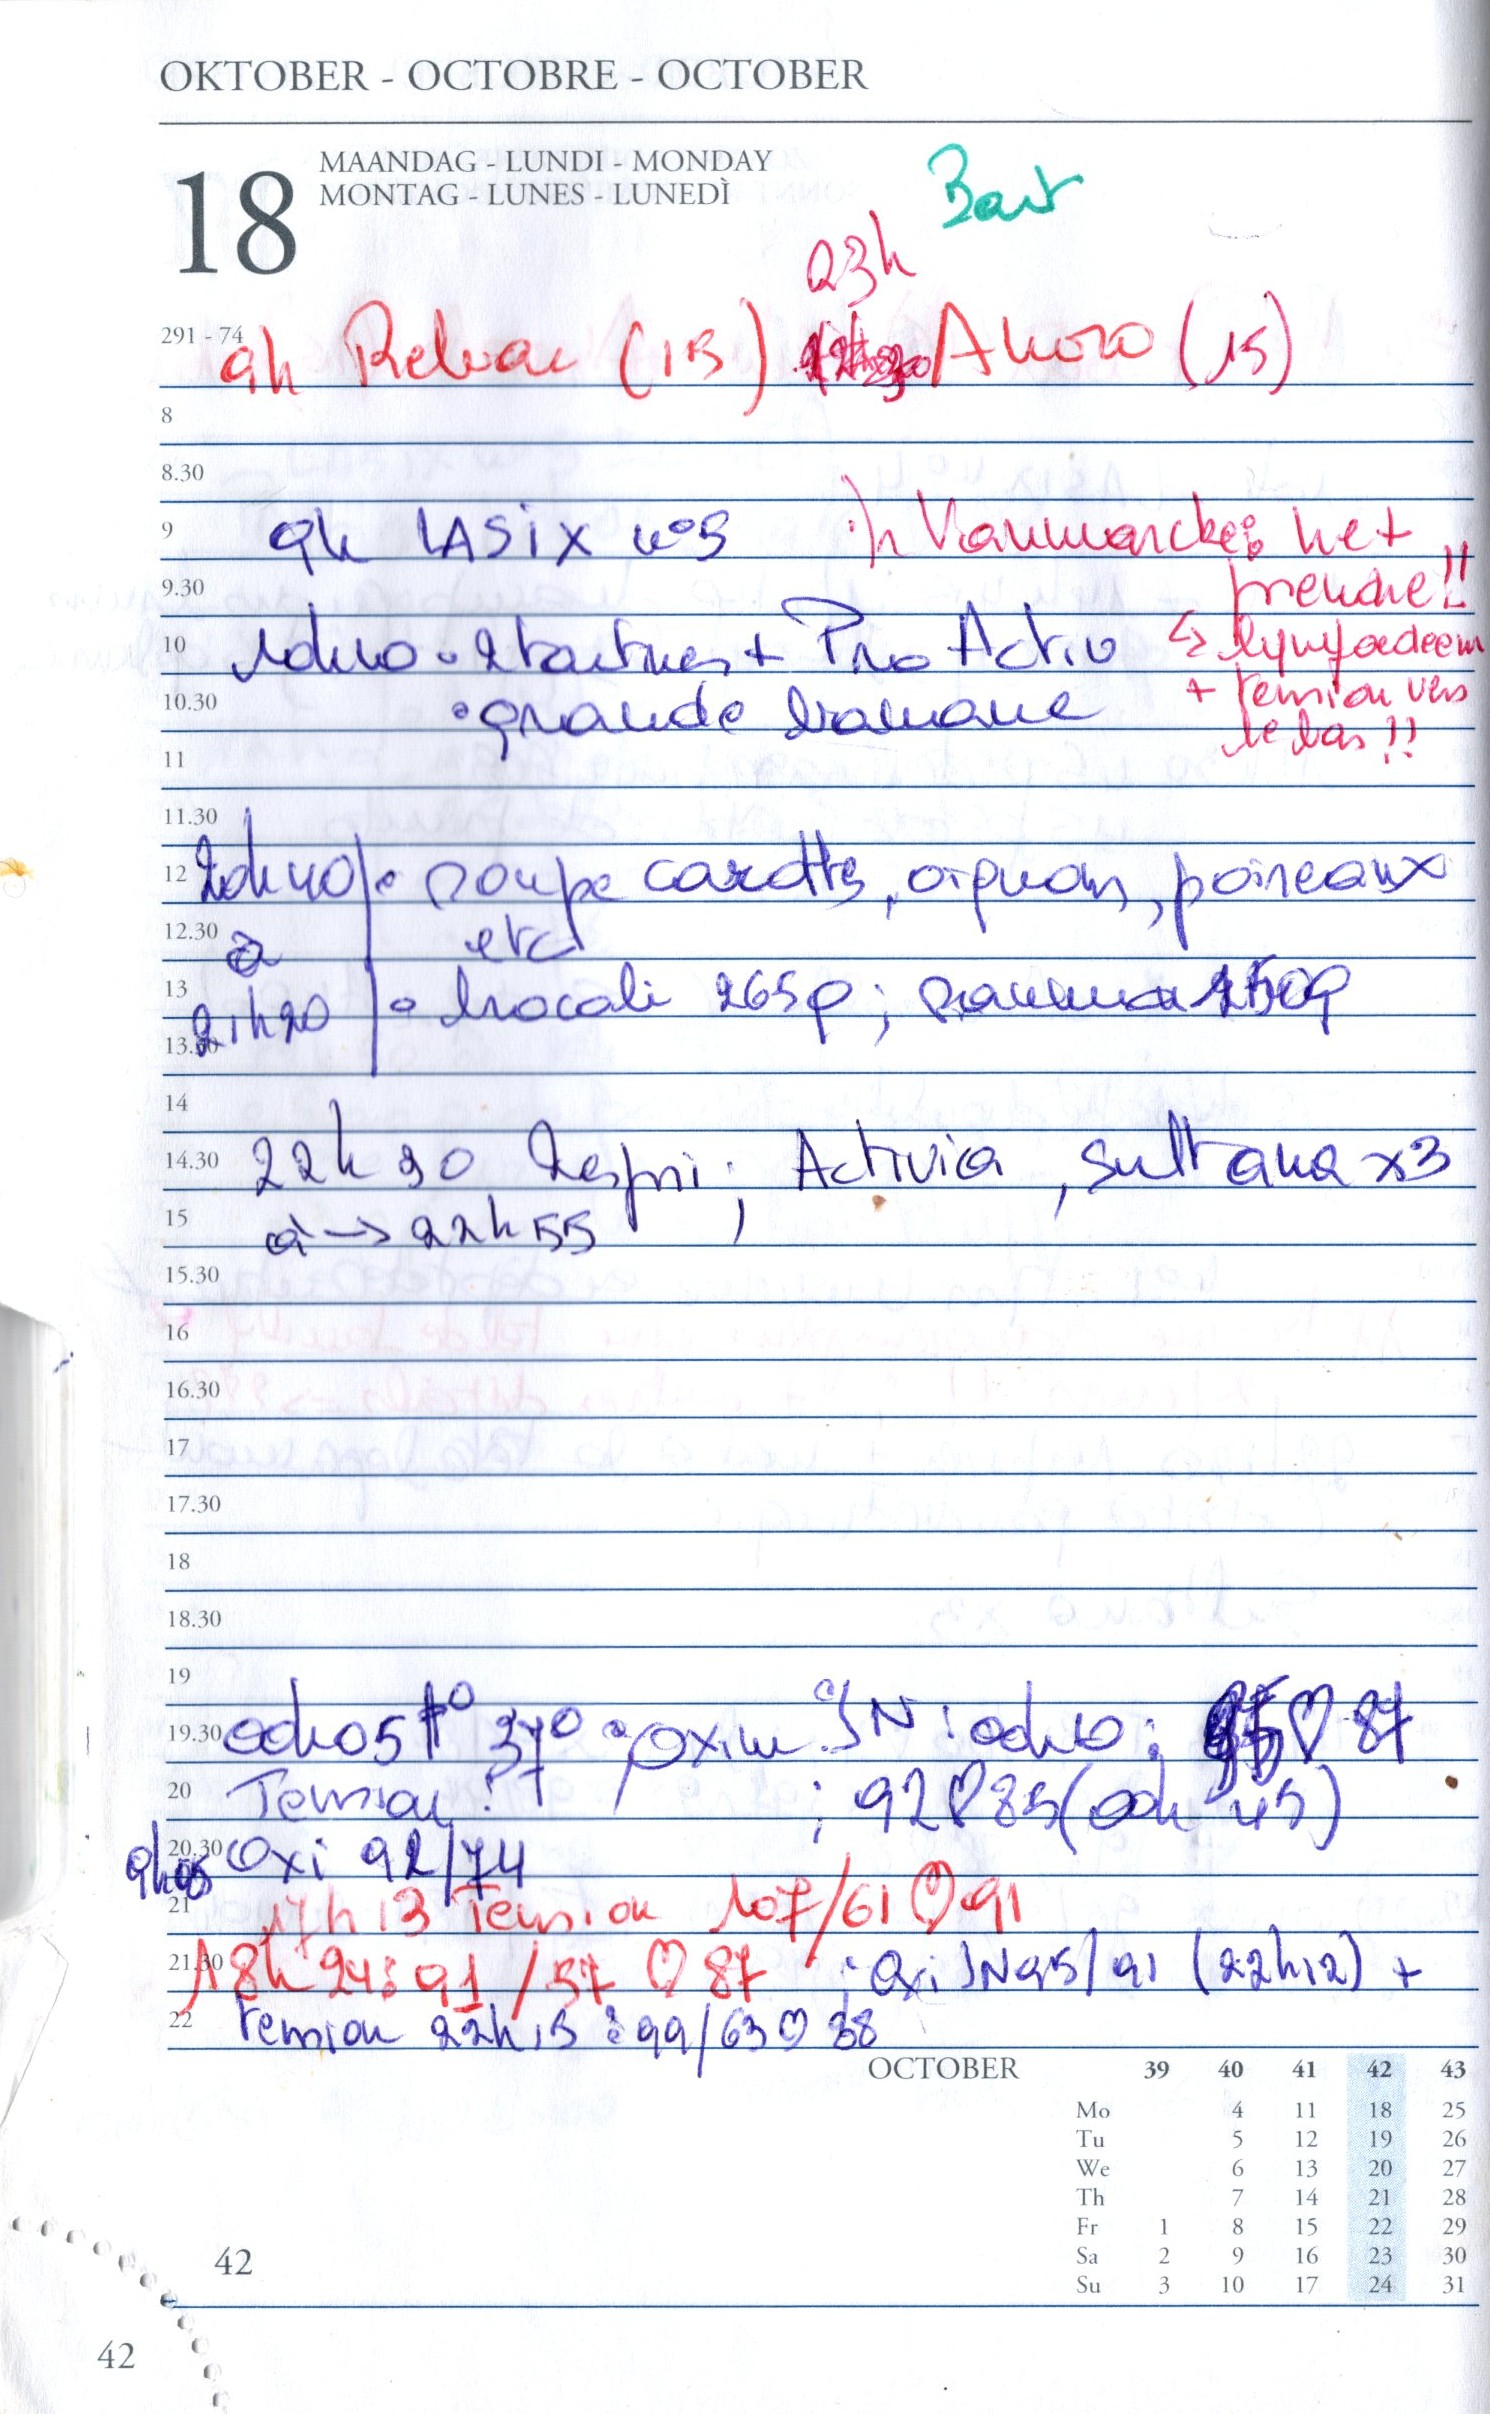 OKTOBER - OCTOBRE - OCTOBER
18
MAANDAG - LUNDI - MONDAY
MONTAG - LUNES - LUNEDÌ
Bart
23h
291 - 74
9h Relvar (15) Anoro (15)
8
8.30
9
9h LASiX n°5
net
9.30
prendre!!
10
10h10 • 2 tartines + Pro Activ
↳ lymfoedeem
10.30
• grande banane
+ tension vers
le bas !!
11
11.30
12
20h40 • soupe carottes, oignons, poireaux
12.30
à etc
13
21h20 • brocoli 265g ; saumon 250g
13.30
14
14.30
22h30 Respri ; Activia, Sultana x3
15
à → 22h55
15.30
16
16.30
17
17.30
18
18.30
19
19.30
00h05 t° 37° ; oxim. JN : 00h10 : 95 ♡ 87
20
Tension : ; 92 ♡ 85 (00h45)
20.30
9h05 Oxi 92/74
21
17h13 Tension 107/61 ♡ 91
21.30
18h24 : 91/57 ♡ 87 ; Oxi JN 95/91 (22h12) +
22
tension 22h15 : 99/63 ♡ 88
OCTOBER 39 40 41 42 43
Mo 4 11 18 25
Tu 5 12 19 26
We 6 13 20 27
Th 7 14 21 28
Fr 1 8 15 22 29
Sa 2 9 16 23 30
Su 3 10 17 24 31
42
42